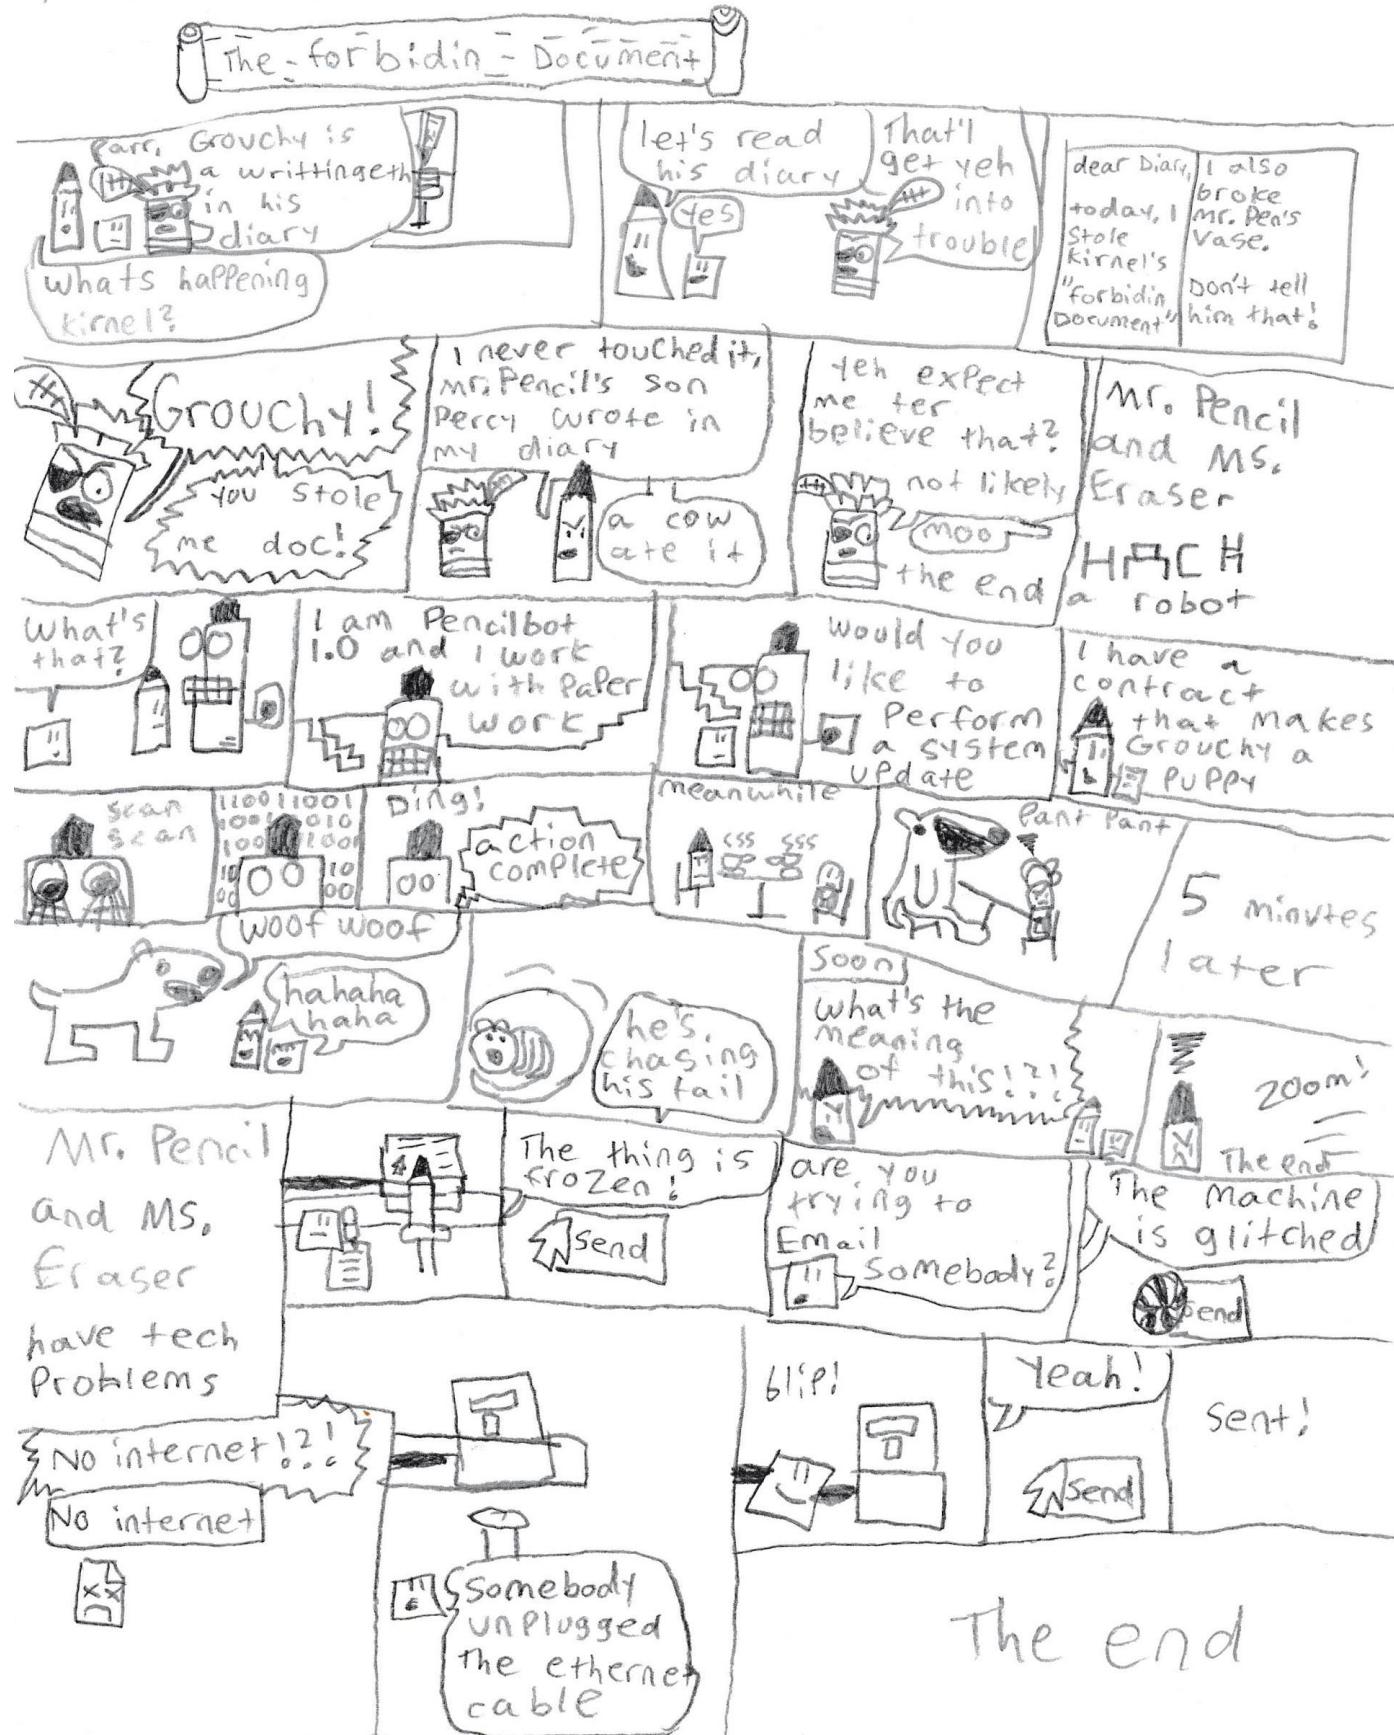 The-forbidin-Document
Parr, Grouchy is
a writtingeth
in his
diary
whats happening
kirnel?
let's read
his diary
Yes
That'l
get yeh
into
trouble!
dear Diary,
today, I
stole
kirnel's
"forbidin
Document"
I also
broke
Mr. Pen's
vase.
Don't tell
him that!
Grouchy!
You stole
me doc!
I never touched it,
Mr. Pencil's son
Percy wrote in
my diary
a cow
ate it
yeh expect
me ter
believe that?
not likely
moo
the end
Mr. Pencil
and Ms.
Eraser
HACH
a robot
What's
that?
I am Pencilbot
1.0 and I work
with PaPer
work
Would you
like to
Perform
a system
update
I have a
contract
that makes
Grouchy a
PuPPy
scan
scan
110011001
Ding!
action
complete
meanwhile
sss sss
Pant Pant
5 minutes
later
woof woof
hahaha
haha
he's
chasing
his tail
Soon
what's the
meaning
of this!?!
zoom!
The end
Mr. Pencil
and Ms.
Eraser
have tech
Problems
The thing is
frozen!
Send
are you
trying to
Email
somebody?
The machine
is glitched
Send
No internet!?!
No internet
Somebody
unplugged
the ethernet
cable
blip!
Yeah!
Send
Sent!
The end